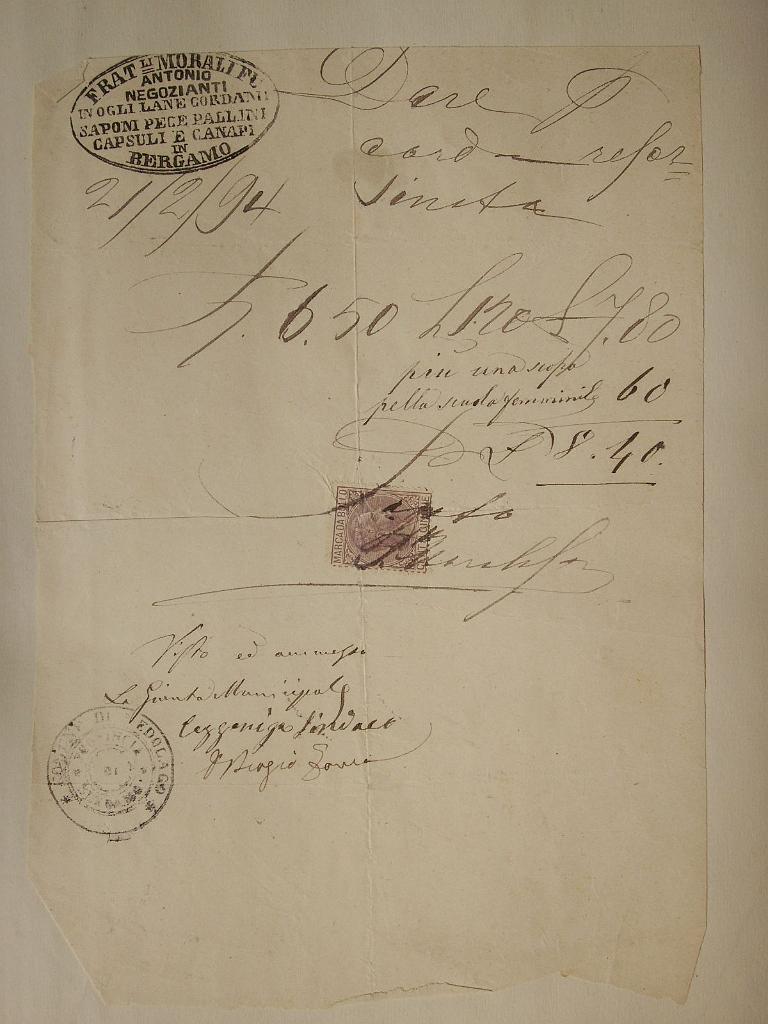 FRAT.LI MORALI FU
ANTONIO
NEGOZIANTI
IN OGLI LANE CORDAMI
SAPONI PECE PALLINI
CAPSULI E CANAPI
IN
BERGAMO
Dare P
corda
21/2/94
F. 6.50 L 1.20 £ 7.80
più una scopa
pella scuola femminile 60
£ 8.40.
MARCA DA BOLLO
Visto ed ammesso
La Giunta Municipale
Sindaco
COMUNE DI MEDOLAGO